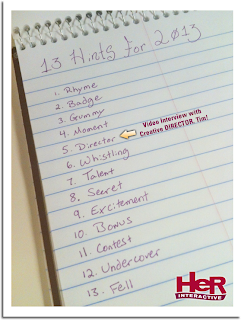 13 Hints for 2013
1. Rhyme
2. Badge
3. Gummy
4. Moment
5. Director
Video Interview with
Creative DIRECTOR, Tim!
6. Whistling
7. Talent
8. Secret
9. Excitement
10. Bonus
11. Contest
12. Undercover
13. Fell
HeR
INTERACTIVE